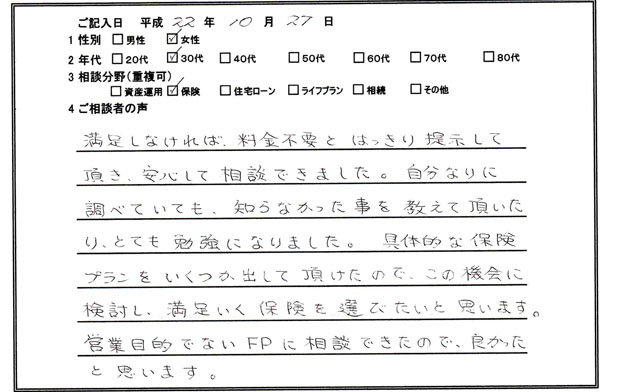 ご記入日 平成 22 年 10 月 27 日
1 性別 □男性 ☑女性
2 年代 □20代 ☑30代 □40代 □50代 □60代 □70代 □80代
3 相談分野(重複可)
□資産運用 ☑保険 □住宅ローン □ライフプラン □相続 □その他
4 ご相談者の声
満足しなければ、料金不要と はっきり提示して
頂き、安心して相談できました。自分なりに
調べていても、知らなかった事を教えて頂いた
り、とても勉強になりました。具体的な保険
プランをいくつか出して頂けたので、この機会に
検討し、満足いく保険を選びたいと思います。
営業目的でないFPに相談できたので、良かった
と思います。